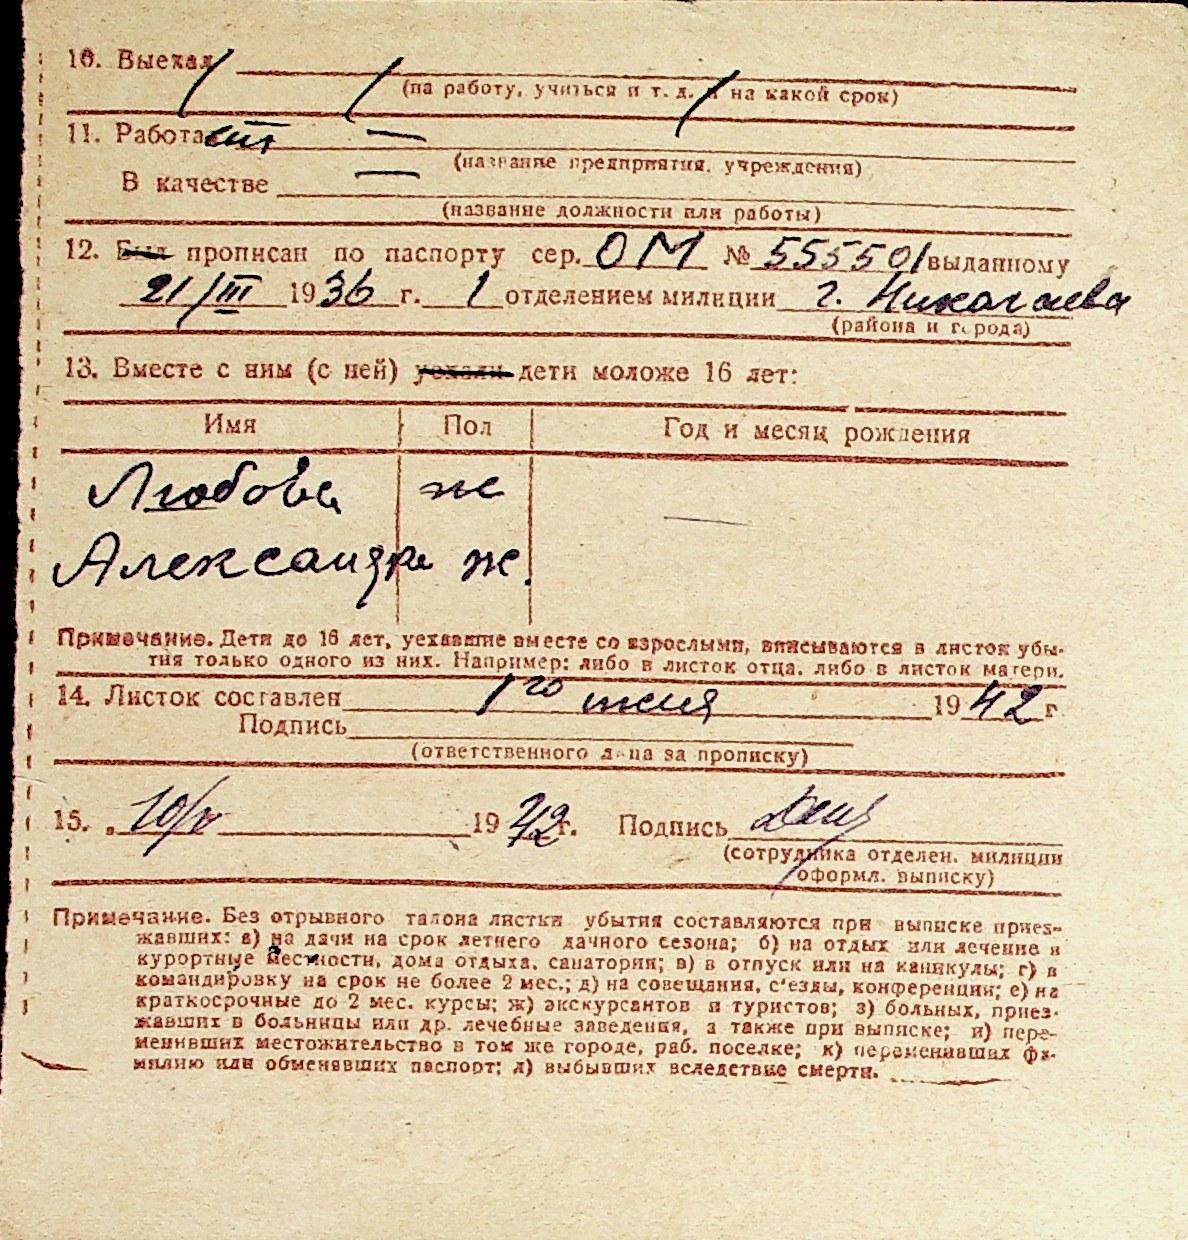 10. Выехал
(на работу, учиться и т. д. и на какой срок)
11. Работает —
(название предприятия, учреждения)
В качестве —
(название должности или работы)
12. Был прописан по паспорту сер. ОМ № 555501 выданному
21/III 1936 г. 1 отделением милиции г. Николаева
(района и города)
13. Вместе с ним (с ней) уехали дети моложе 16 лет:
Имя Пол Год и месяц рождения
Любовь ж
Александра ж.
Примечание. Дети до 16 лет, уехавшие вместе со взрослыми, вписываются в листок убы-
тия только одного из них. Например: либо в листок отца, либо в листок матери.
14. Листок составлен 1го июня 1942 г
Подпись
(ответственного лица за прописку)
15. 10/ 1942 г. Подпись
(сотрудника отделен. милиции
оформл. выписку)
Примечание. Без отрывного талона листки убытия составляются при выписке приез-
жавших: а) на дачи на срок летнего дачного сезона; б) на отдых или лечение в
курортные местности, дома отдыха, санатории; в) в отпуск или на каникулы; г) в
командировку на срок не более 2 мес.; д) на совещания, с'езды, конференции; е) на
краткосрочные до 2 мес. курсы; ж) экскурсантов и туристов; з) больных, приез-
жавших в больницы или др. лечебные заведения, а также при выписке; и) пере-
менивших местожительство в том же городе, раб. поселке; к) переменивших фа-
милию или обменявших паспорт; л) выбывших вследствие смерти.